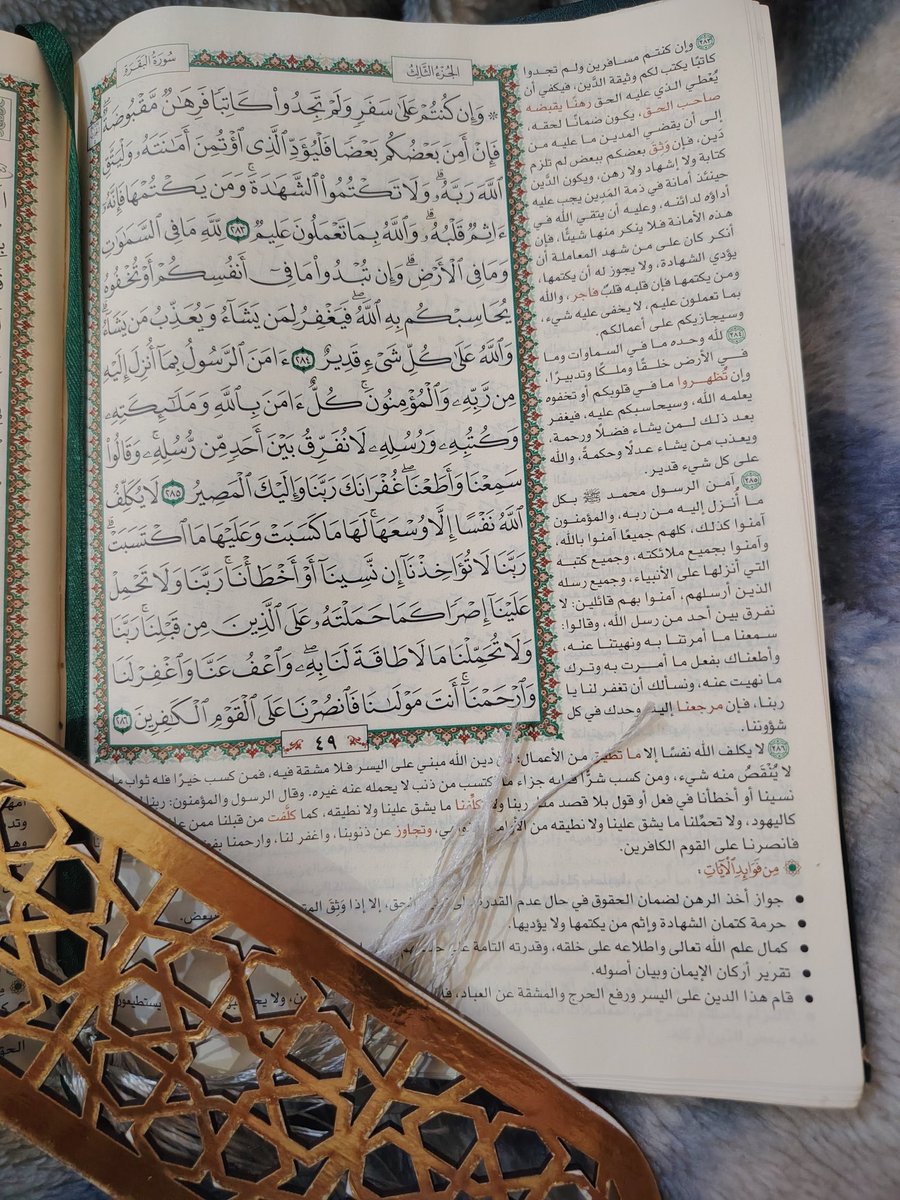 سُورَةُ البَقَرَةِ
الجُزْءُ الثَّالِثُ
۞ وَإِن كُنتُمْ عَلَىٰ سَفَرٍ وَلَمْ تَجِدُوا۟ كَاتِبًا فَرِهَـٰنٌ مَّقْبُوضَةٌ ۖ
فَإِنْ أَمِنَ بَعْضُكُم بَعْضًا فَلْيُؤَدِّ ٱلَّذِى ٱؤْتُمِنَ أَمَـٰنَتَهُۥ وَلْيَتَّقِ
ٱللَّهَ رَبَّهُۥ ۗ وَلَا تَكْتُمُوا۟ ٱلشَّهَـٰدَةَ ۚ وَمَن يَكْتُمْهَا فَإِنَّهُۥٓ
ءَاثِمٌ قَلْبُهُۥ ۗ وَٱللَّهُ بِمَا تَعْمَلُونَ عَلِيمٌ ٢٨٣ لِّلَّهِ مَا فِى ٱلسَّمَـٰوَٰتِ
وَمَا فِى ٱلْأَرْضِ ۗ وَإِن تُبْدُوا۟ مَا فِىٓ أَنفُسِكُمْ أَوْ تُخْفُوهُ
يُحَاسِبْكُم بِهِ ٱللَّهُ ۖ فَيَغْفِرُ لِمَن يَشَآءُ وَيُعَذِّبُ مَن يَشَآءُ ۗ
وَٱللَّهُ عَلَىٰ كُلِّ شَىْءٍ قَدِيرٌ ٢٨٤ ءَامَنَ ٱلرَّسُولُ بِمَآ أُنزِلَ إِلَيْهِ
مِن رَّبِّهِۦ وَٱلْمُؤْمِنُونَ ۚ كُلٌّ ءَامَنَ بِٱللَّهِ وَمَلَـٰٓئِكَتِهِۦ
وَكُتُبِهِۦ وَرُسُلِهِۦ لَا نُفَرِّقُ بَيْنَ أَحَدٍ مِّن رُّسُلِهِۦ ۚ وَقَالُوا۟
سَمِعْنَا وَأَطَعْنَا ۖ غُفْرَانَكَ رَبَّنَا وَإِلَيْكَ ٱلْمَصِيرُ ٢٨٥ لَا يُكَلِّفُ
ٱللَّهُ نَفْسًا إِلَّا وُسْعَهَا ۚ لَهَا مَا كَسَبَتْ وَعَلَيْهَا مَا ٱكْتَسَبَتْ ۗ
رَبَّنَا لَا تُؤَاخِذْنَآ إِن نَّسِينَآ أَوْ أَخْطَأْنَا ۚ رَبَّنَا وَلَا تَحْمِلْ
عَلَيْنَآ إِصْرًا كَمَا حَمَلْتَهُۥ عَلَى ٱلَّذِينَ مِن قَبْلِنَا ۚ رَبَّنَا
وَلَا تُحَمِّلْنَا مَا لَا طَاقَةَ لَنَا بِهِۦ ۖ وَٱعْفُ عَنَّا وَٱغْفِرْ لَنَا
وَٱرْحَمْنَآ ۚ أَنتَ مَوْلَىٰنَا فَٱنصُرْنَا عَلَى ٱلْقَوْمِ ٱلْكَـٰفِرِينَ ٢٨٦
٤٩
٢٨٣ وإن كنتم مسافرين ولم تجدوا
كاتبًا يكتب لكم وثيقة الدَّين، فيكفي أن
يُعْطي الذي عليه الحق رهنًا يقبضه
صاحب الحق، يكون ضمانًا لحقه،
إلى أن يقضي المدين ما عليه من
دَين، فإن وَثق بعضكم ببعض لم تلزم
كتابة ولا إشهاد ولا رهن، ويكون الدَّين
حينئذ أمانة في ذمة المَدِين يجب عليه
أداؤه لدائنه، وعليه أن يتقي الله في
هذه الأمانة فلا ينكر منها شيئًا، فإن
أنكر كان على من شهد المعاملة أن
يؤدي الشهادة، ولا يجوز له أن يكتمها،
ومن يكتمها فإن قلبه قلبٌ فاجر، والله
بما تعملون عليم، لا يخفى عليه شيء،
وسيجازيكم على أعمالكم.
٢٨٤ لله وحده ما في السماوات وما
في الأرض خلقًا وملكًا وتدبيرًا،
وإن تُظهروا ما في قلوبكم أو تخفوه
يعلمه الله، وسيحاسبكم عليه، فيغفر
بعد ذلك لمن يشاء فضلًا ورحمة،
ويعذب من يشاء عدلًا وحكمةً، والله
على كل شيء قدير.
٢٨٥ آمن الرسول محمد ﷺ بكل
ما أُنزل إليه من ربه، والمؤمنون
آمنوا كذلك، كلهم جميعًا آمنوا بالله،
وآمنوا بجميع ملائكته، وجميع كتبه
التي أنزلها على الأنبياء، وجميع رسله
الذين أرسلهم، آمنوا بهم قائلين: لا
نفرق بين أحد من رسل الله، وقالوا:
سمعنا ما أمرتنا به ونهيتنا عنه،
وأطعناك بفعل ما أمرت به وترك
ما نهيت عنه، ونسألك أن تغفر لنا يا
ربنا، فإن مرجعنا إليك وحدك في كل
شؤوننا.
٢٨٦ لا يكلف الله نفسًا إلا ما تطيق من الأعمال؛ دين الله مبني على اليسر فلا مشقة فيه، فمن كسب خيرًا فله ثواب ما
لا يُنْقَصُ منه شيء، ومن كسب شرًّا فعليه جزاء كتسب من ذنب لا يحمله عنه غيره. وقال الرسول والمؤمنون: ربنا
نسينا أو أخطأنا في فعل أو قول بلا قصد ربنا ولا تكلِّفنا ما يشق علينا ولا نطيقه، كما كلَّفت من قبلنا ممن
كاليهود، ولا تحمِّلنا ما يشق علينا ولا نطيقه من الأوامر وتجاوز عن ذنوبنا، واغفر لنا، وارحمنا
فانصرنا على القوم الكافرين.
مِن فَوَائِدِ الآيَاتِ :
• جواز أخذ الرهن لضمان الحقوق في حال عدم القدرة إلا إذا وَثِقَ
• حرمة كتمان الشهادة وإثم من يكتمها ولا يؤديها.
• كمال علم الله تعالى واطلاعه على خلقه، وقدرته التامة
• تقرير أركان الإيمان وبيان أصوله.
• قام هذا الدين على اليسر ورفع الحرج والمشقة عن العباد،